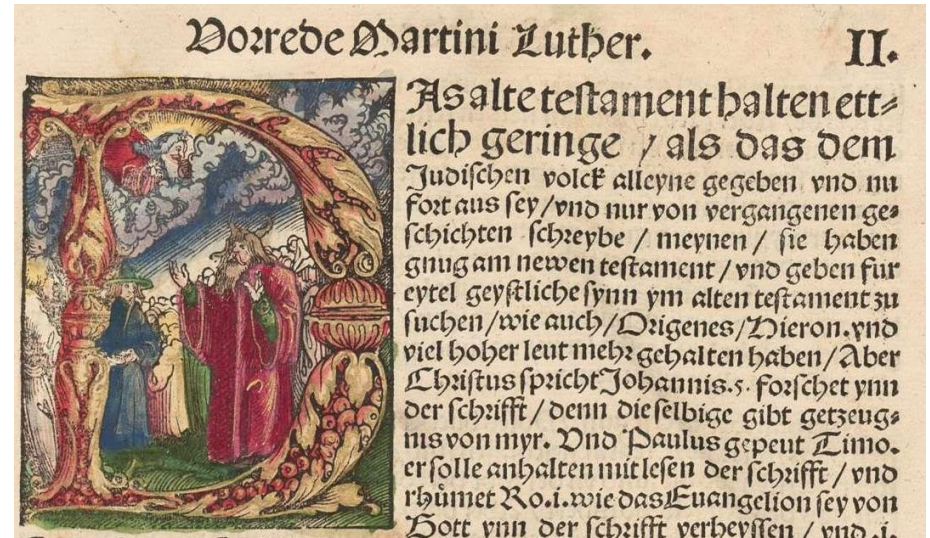 Vorrede Martini Luther.
II.
DAs alte testament halten ett-
lich geringe / als das dem
Judischen volck alleyne gegeben vnd nu
fort aus sey / vnd nur von vergangenen ge-
schichten schreybe / meynen / sie haben
gnug am newen testament / vnd geben fur
eytel geystliche synn ym alten testament zu
suchen / wie auch / Origenes / Hieron. vnd
viel hoher leut mehr gehalten haben / Aber
Christus spricht Johannis. 5. forschet ynn
der schrifft / denn die selbige gibt getzeug-
nis von myr. Vnd Paulus gepeut Timo.
er solle anhalten mit lesen der schrifft / vnd
rhůmet Ro. i. wie das Euangelion sey von
Gott ynn der schrifft verheyssen / vnd .i.